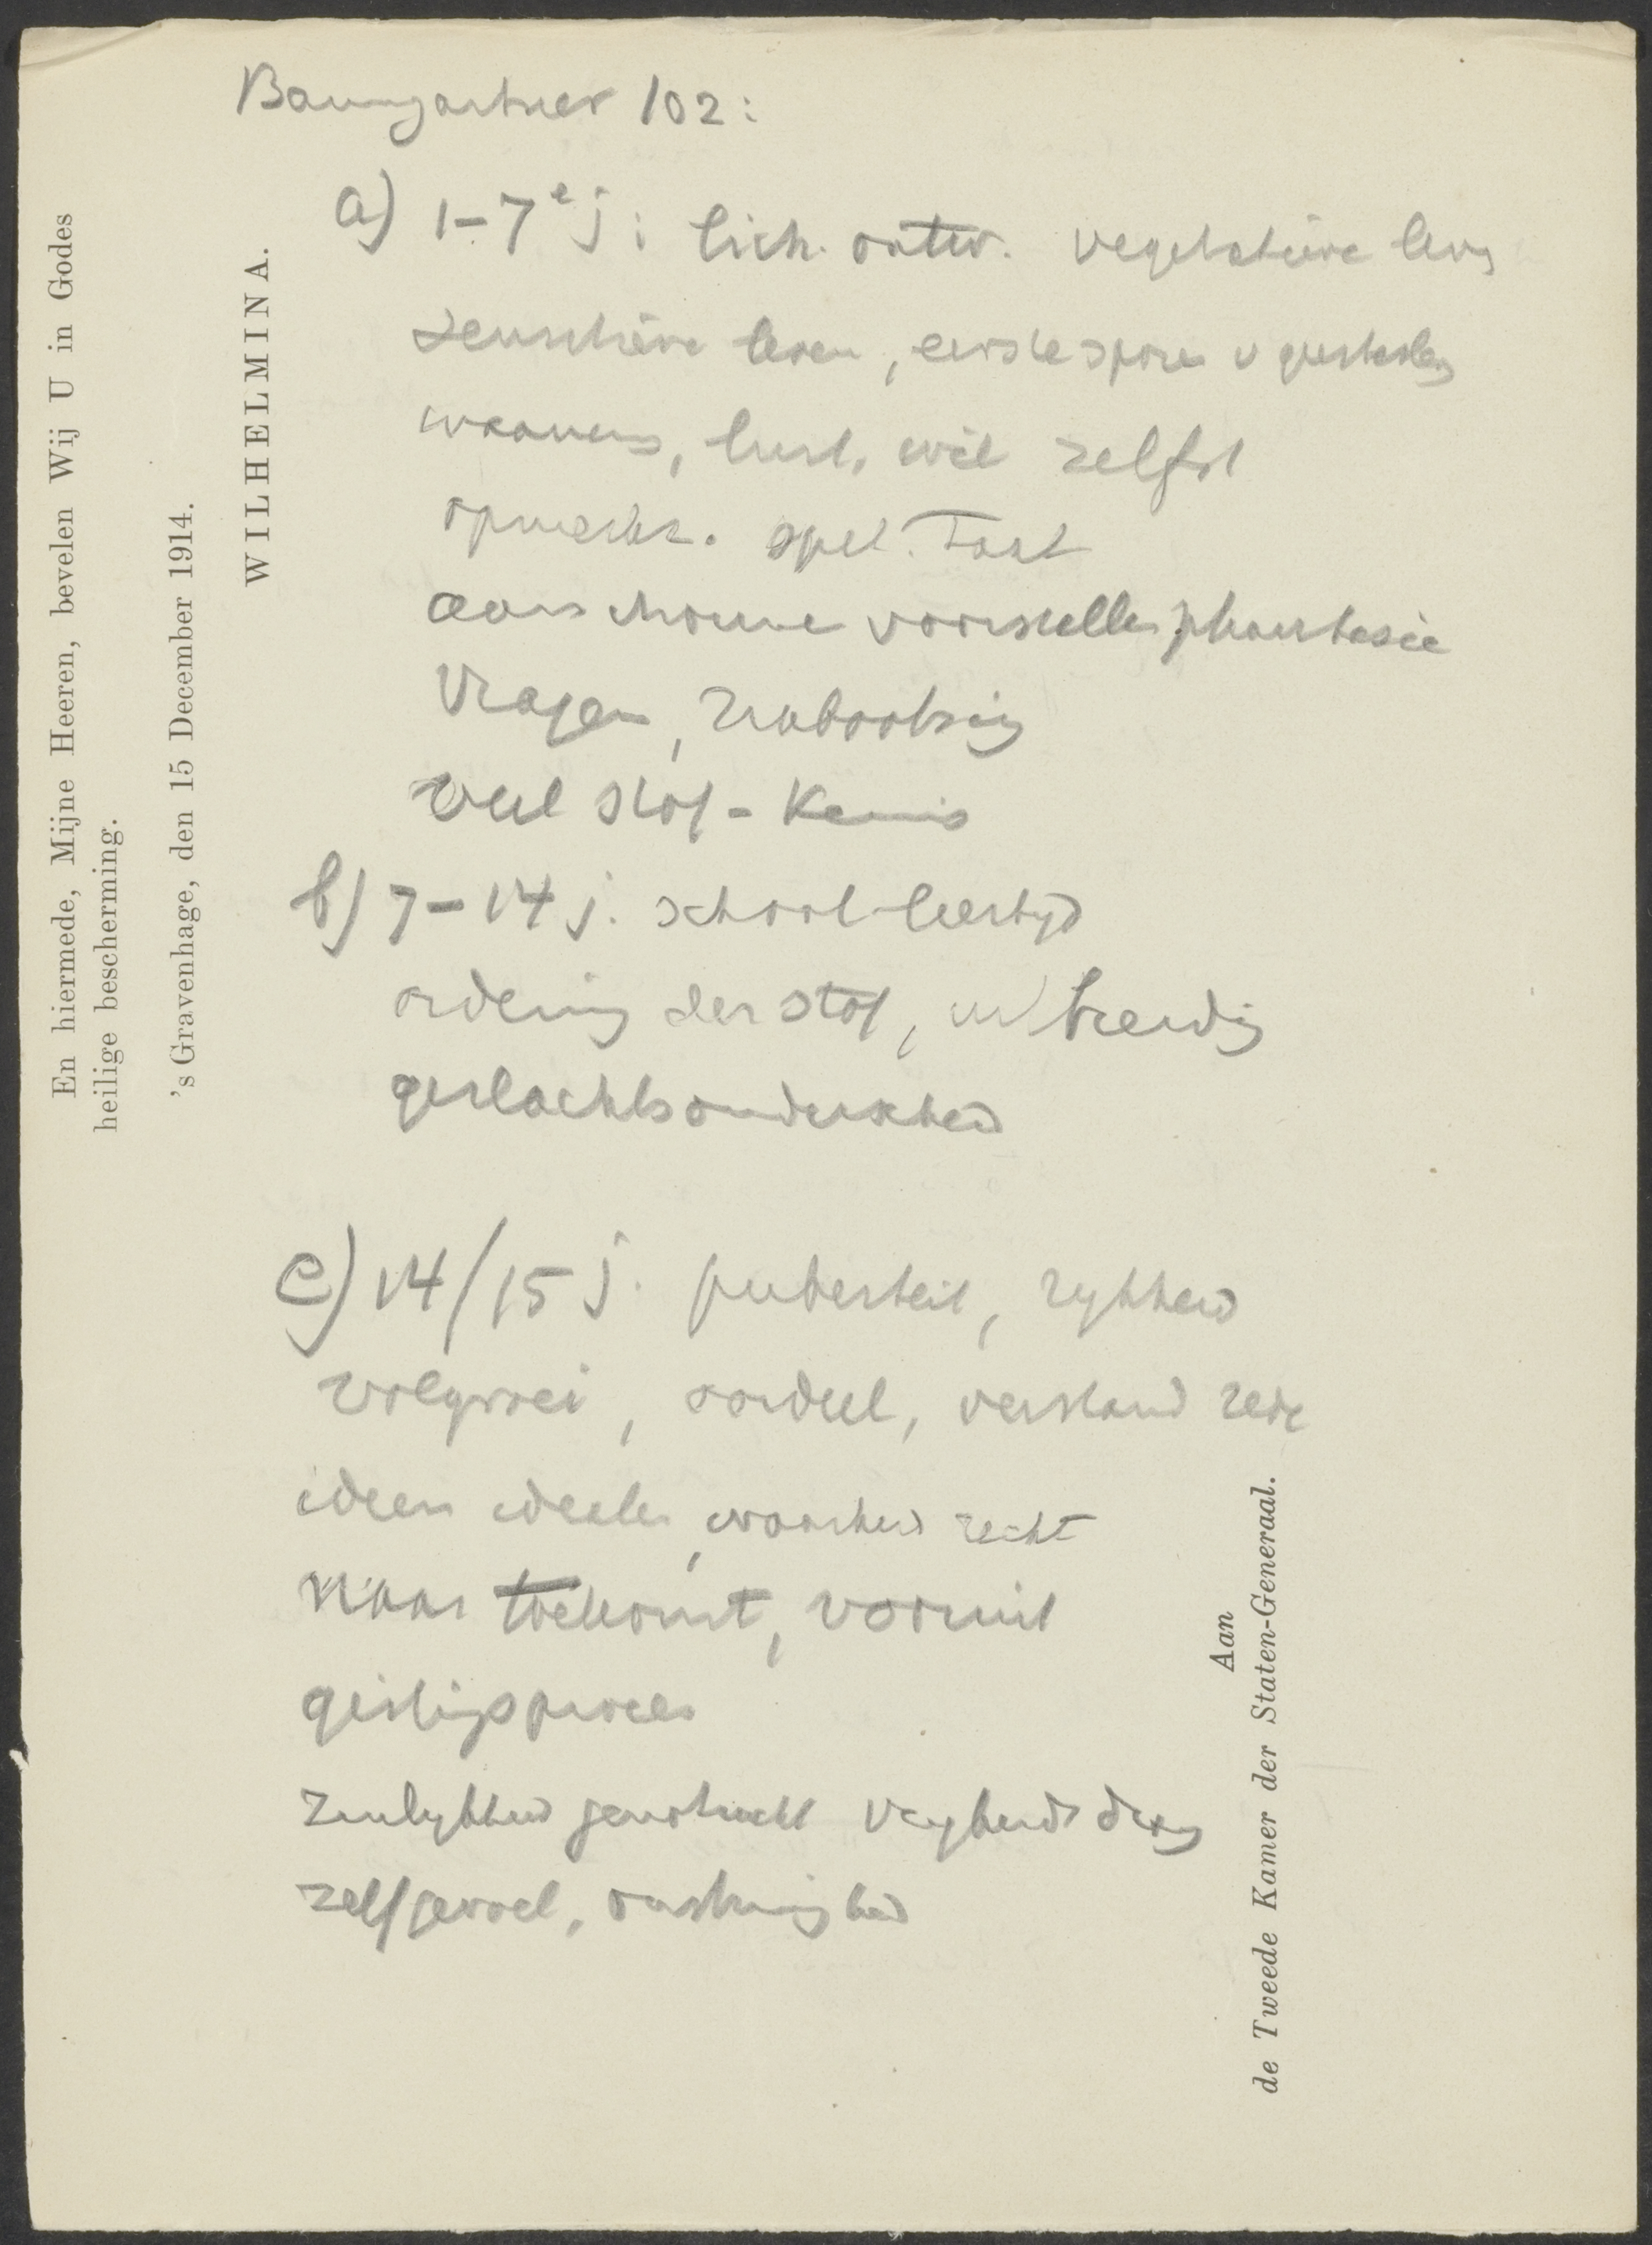 Baumgartner 102:
a) 1-7e j: lich. ontw. vegetatieve leven
sensitieve leven, eerste sporen v geestesleven
waarn, lust, wil zelfst
opmerkz. spel. Taal
aanschouwe voorstellen phantasie
Vragen, nabootsing
veel stof - Kennis
b) 7-14 j. school-leertyd
ordening der stof, uitbreiding
geslachtsonderscheid
c) 14/15 j. puberteit, rypheid
volgroei, oordeel, verstand rede
ideen idealen, waarheid recht
Naar toekomst, vooruit
gistingsproces
zinlykheid genotzucht vryheidsdrang
zelfgevoel, onstuimigheid
En hiermede, Mijne Heeren, bevelen Wij U in Godes
heilige bescherming.
's Gravenhage, den 15 December 1914.
WILHELMINA.
Aan
de Tweede Kamer der Staten-Generaal.